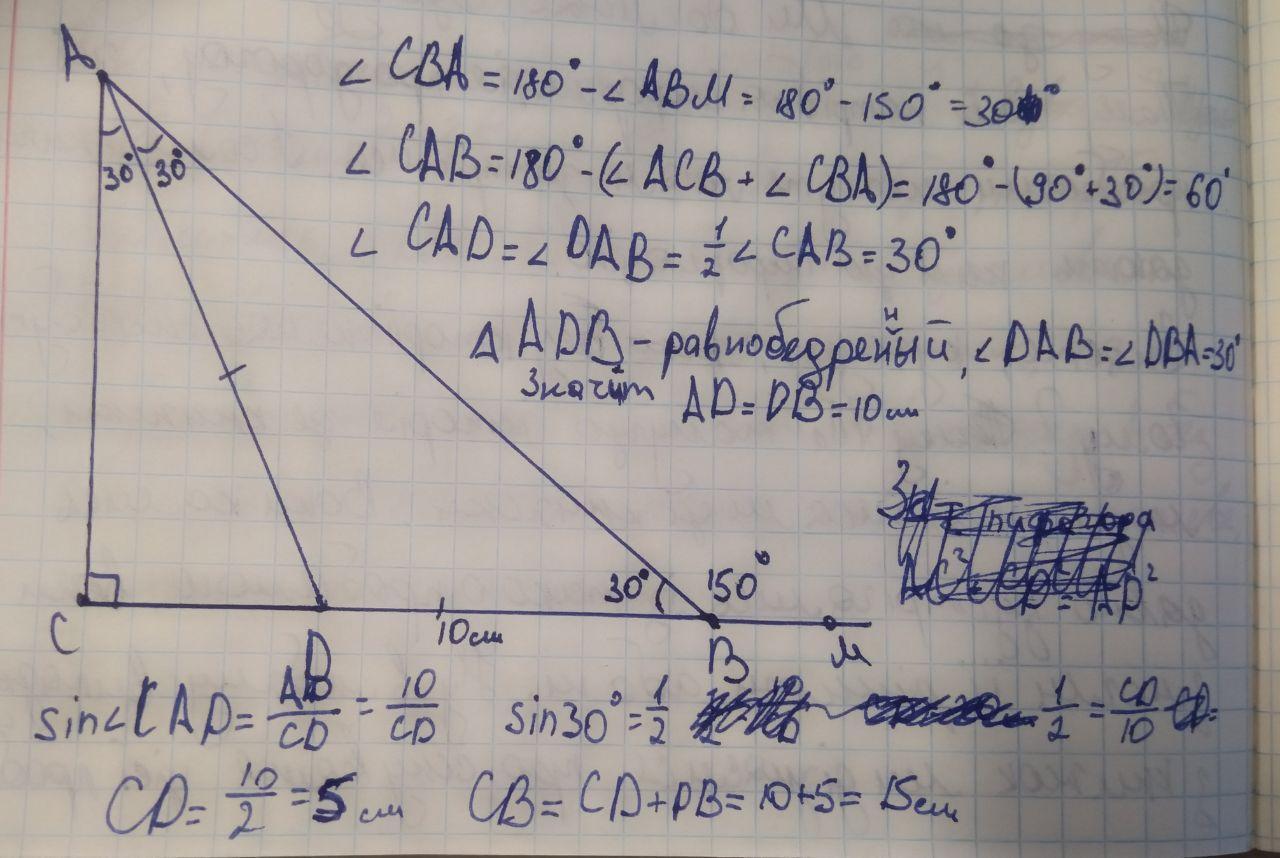 A
∠ CBA = 180° - ∠ ABM = 180° - 150° = 30°
30° 30°
∠ CAB = 180° - (∠ ACB + ∠ CBA) = 180° - (90° + 30°) = 60°
∠ CAD = ∠ DAB = 1/2 ∠ CAB = 30°
Δ ADB - равнобедреный, ∠ DAB = ∠ DBA = 30°
н
значит AD = DB = 10 см
AC² CD = AD²
30° 150°
C D 10 см B M
sin∠CAD = AD/CD = 10/CD sin30° = 1/2 1/2 = CD/10
CD = 10/2 = 5 см CB = CD + DB = 10 + 5 = 15 см